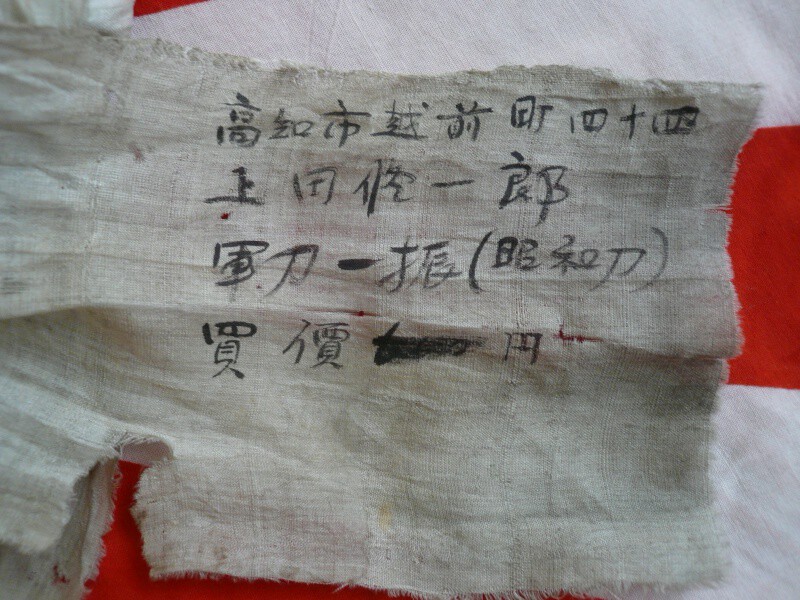 高知市越前町四十四
上田修一郎
軍刀一振(昭和刀)
買價 円